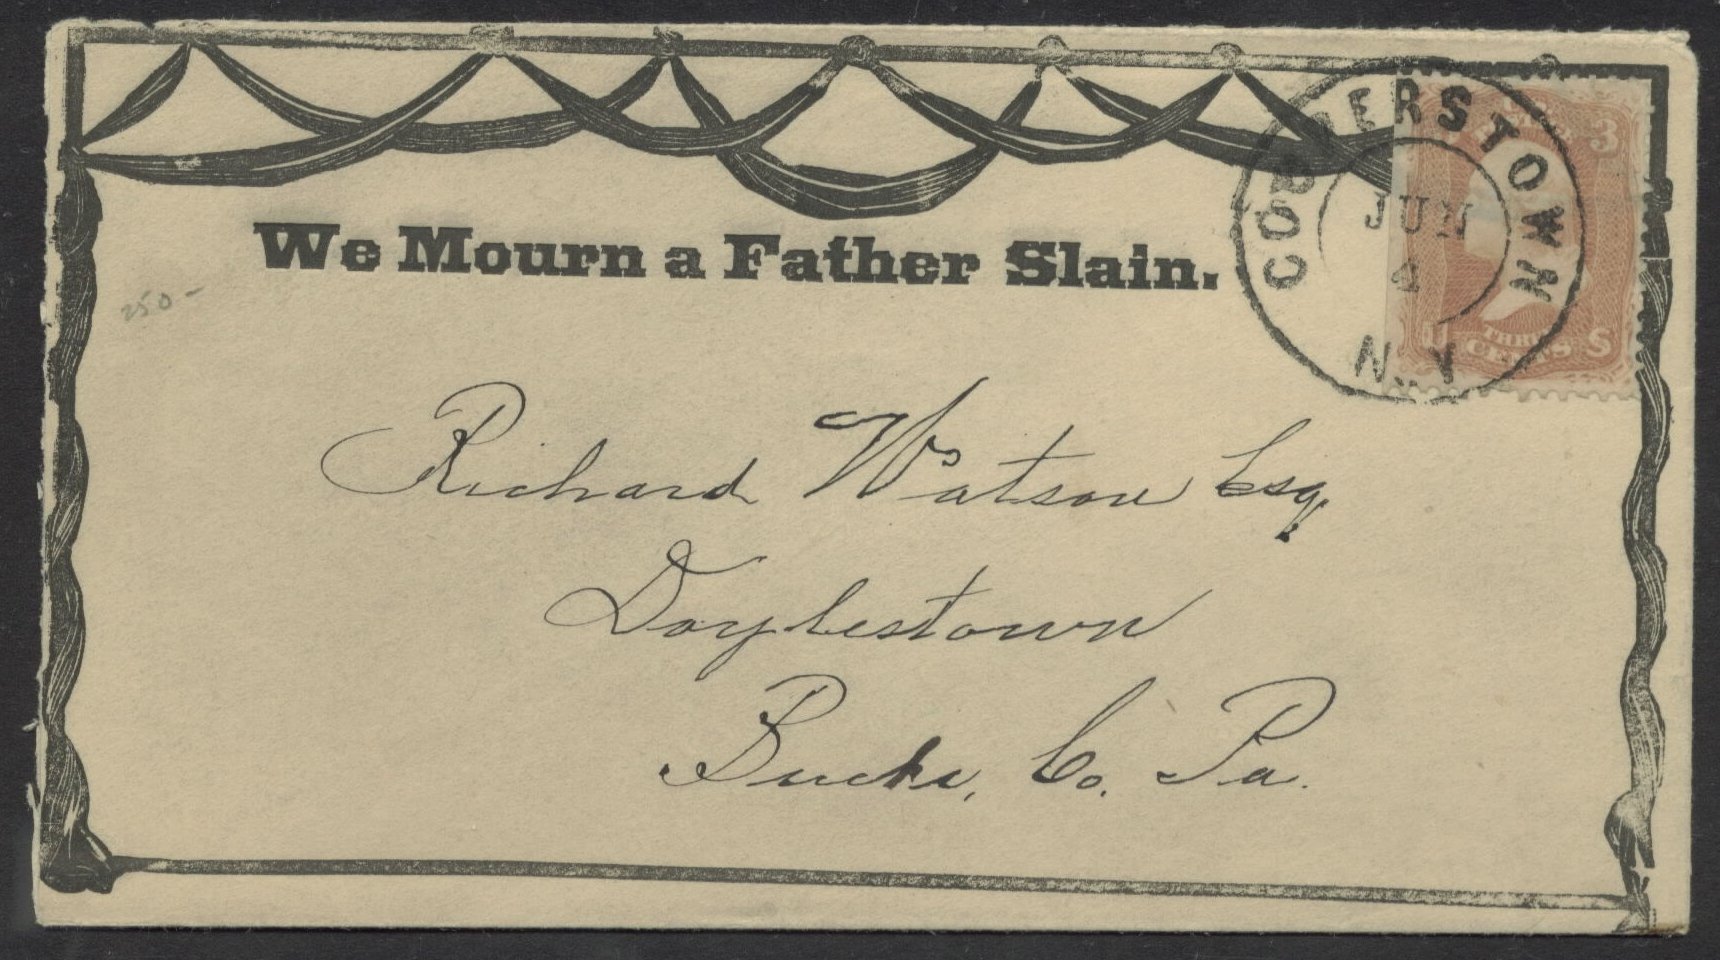 We Mourn a Father Slain.
COOPERSTOWN
JUN
4
N.Y
3
THREE
CENTS
250-
Richard Watson Esq.
Doylestown
Bucks, Co. Pa.